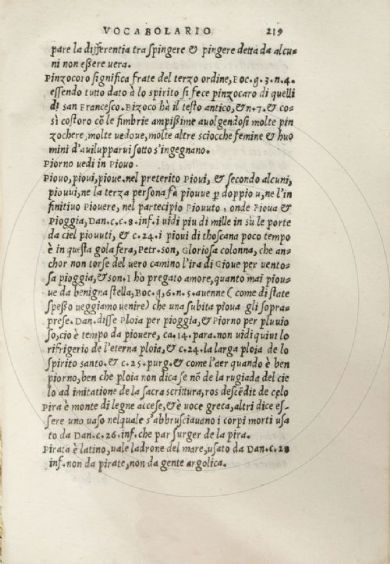 VOCABOLARIO 219
pare la differentia tra spingere & pingere detta da alcu-
ni non eßere uera.
Pinzocoro significa frate del terzo ordine, Boc.g.3.n.4.
essendo tutto dato à lo spirito si fece pinzocaro di quelli
di san Francesco. Bizoco hà il testo antico, & n.7. & co-
sì costoro cō le fimbrie ampißime auolgendosi molte pin
zochere, molte uedoue, molte altre sciocche femine & huo
mini d'auilupparui sotto s'ingegnano.
Piorno uedi in Piouo.
Piouo, pioui, pioue. nel preterito Pioui, & secondo alcuni,
piouui, ne la terza persona fà piouue p doppio u, ne l'in
finitiuo Piouere, nel partecipio Piouuto. onde Pioua &
Pioggia, Dan.c.8.inf.i uidi piu di mille in sù le porte
da ciel piouuti, & c.24.i pioui di thoscana poco tempo
è in questa gola fera, Petr.son, Gloriosa colonna, che an-
chor non torse del uero camino l'ira di Gioue per uento-
sa pioggia, & son. I ho pregato amore, quanto mai piou-
ue da benigna stella, Boc.g.6.n.5.auenne (come di state
speßo ueggiamo uenire) che una subita pioua gli sopra-
prese. Dan.disse Ploia per pioggia, & Piorno per pluuio
so, cio è tempo da piouere, ca.14.para.non uidi quiui lo
rifrigerio de l'eterna ploia, & c.24.la larga ploia de lo
spirito santo. & c.25.purg. & come l'aer quando è ben
piorno, ben che ploia non dica se nō de la rugiada del cie
lo ad imitatione de la sacra scrittura, ros descēdit de cęlo
Pira è monte di legne accese, & è uoce greca, altri dice es-
sere uno uaso nelquale s'abbrusciauano i corpi morti usa
to da Dan.c.26.inf.che par surger de la pira.
Pirata è latino, uale ladrone del mare, usato da Dan.c.28
inf.non da pirate, non da gente argolica.